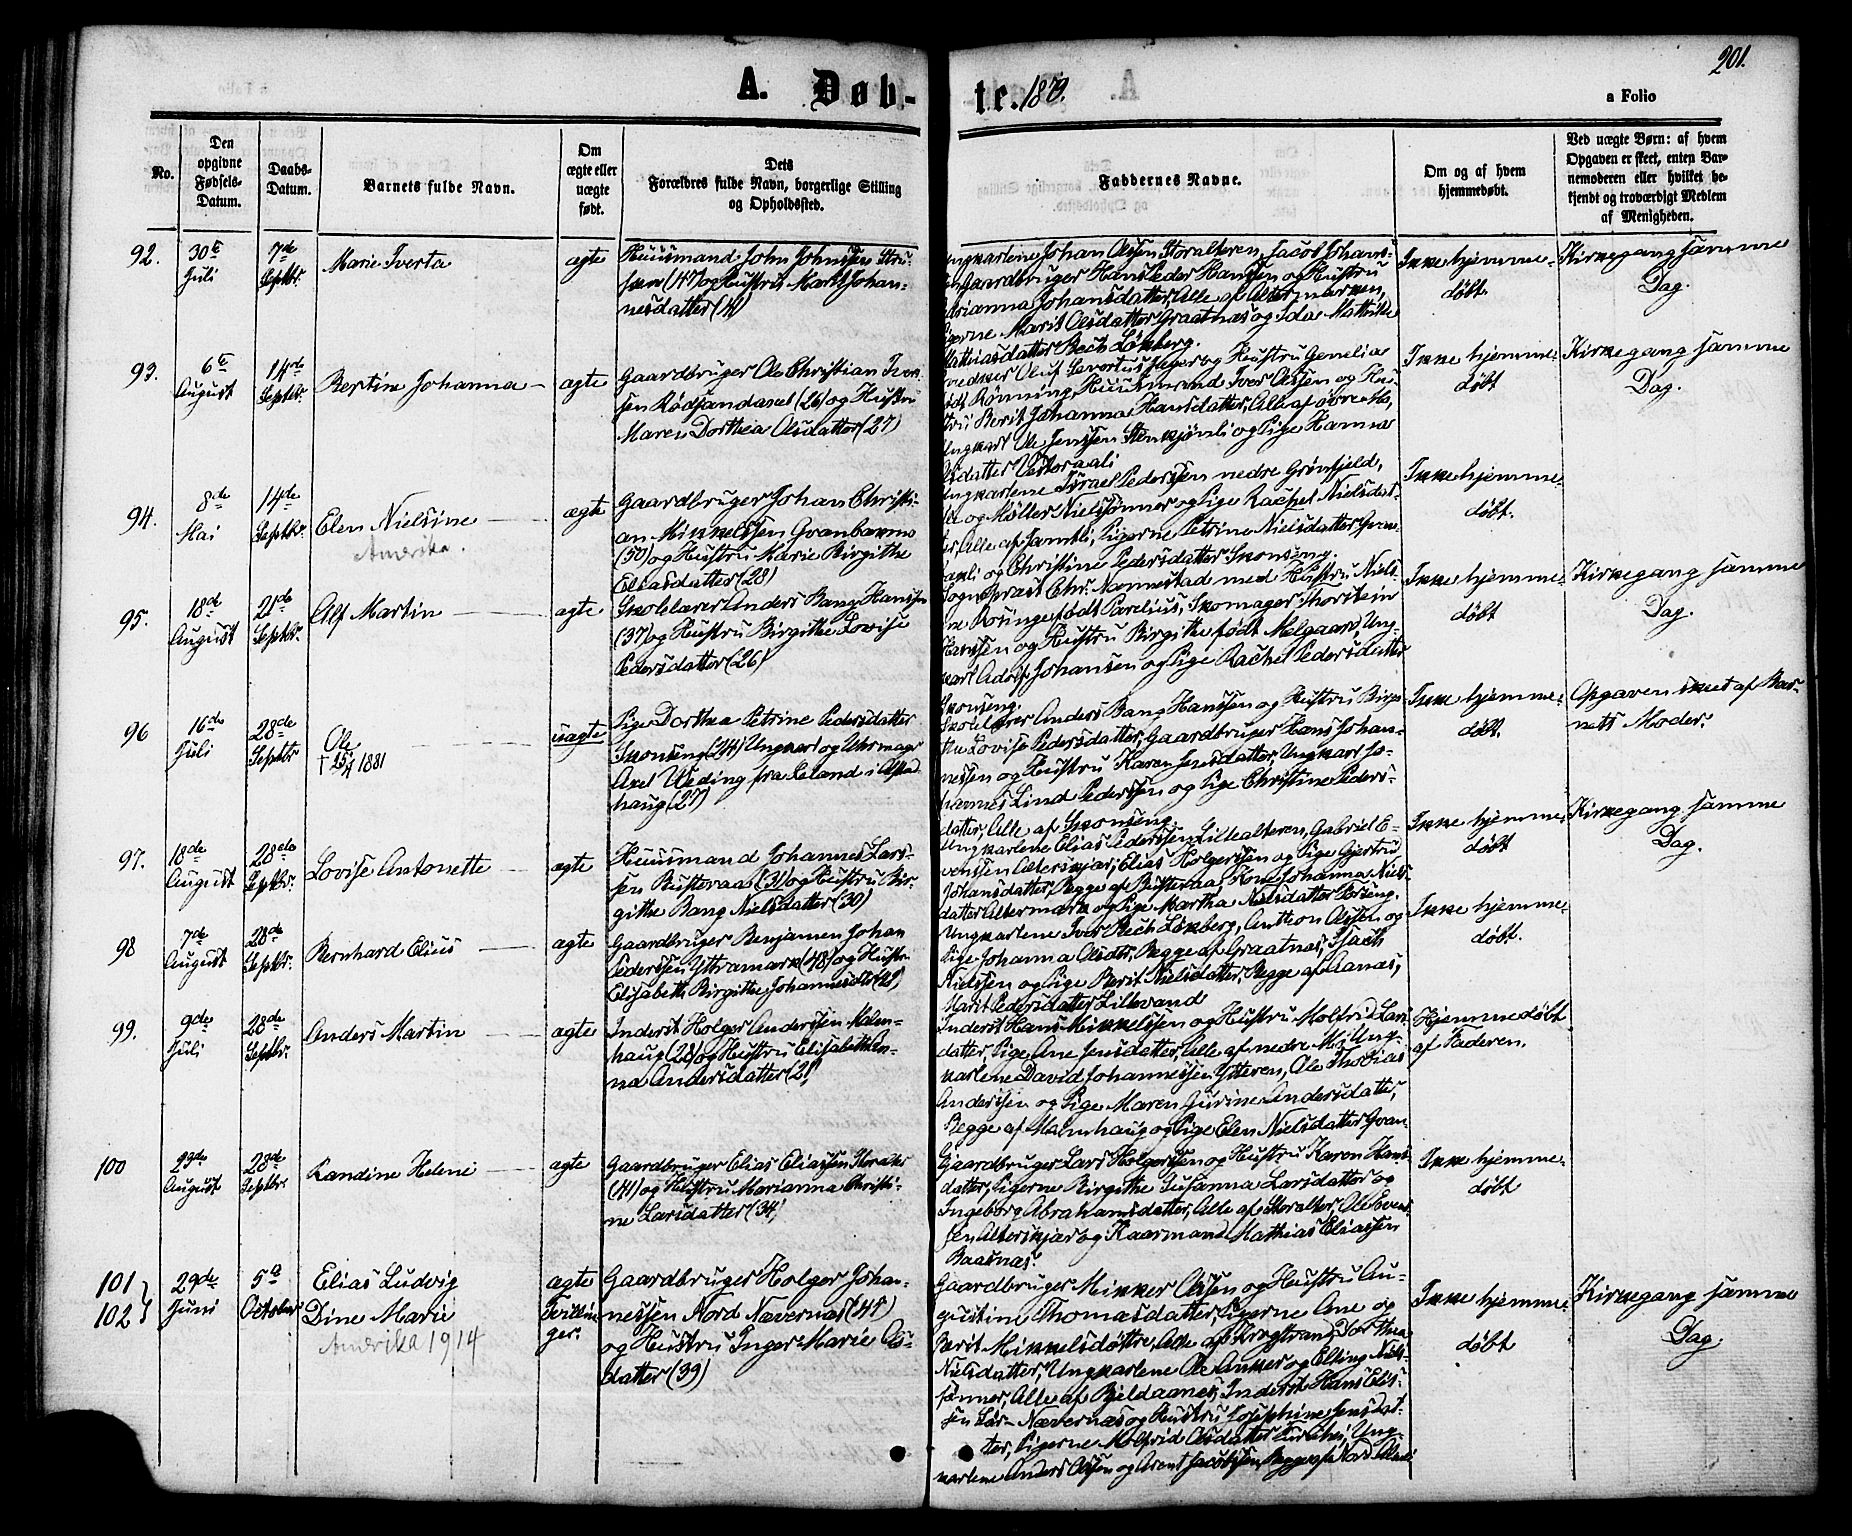 201.
A. Døb-
te. 1879.
a Folio
No.
Den
opgivne
Fødsels-
Datum.
Daabs-
Datum.
Barnets fulde Navn.
Om
ægte eller
uægte
født.
Dets
Forældres fulde Navn, borgerlige Stilling
og Opholdssted.
Faddernes Navne.
Om og af hvem
hjemmedøbt.
Ved uægte Børn: af hvem
Opgaven er skeet, enten Bar-
nemoderen eller hvilket be-
kjendt og troværdigt Medlem
af Menigheden.
92.
30te
Juli
7de
Septbr.
Marie Iverta
ægte
Huusmand John Johnsen
(47) og Hustru Marit Johan-
nesdatter (41)
Johan Olsen Storalteren, Jacob Johans-
Gaardbruger Hans Peder Hansen og Hustru
Johansdatter, Alle af Altermarken,
Marit Olsdatter Graatnæs og Ida Mathilde
Mathiasdatter Bech Løkberg.
Ikke hjemme-
døbt.
Kirkegang samme
Dag.
93.
6te
August
14de
Septbr.
Bertine Johanna
ægte
Gaardbruger Ole Christian Iver-
sen Rødsandaxel (26) og Hustru
Maren Dorthea Olsdatter (27)
Oluf Sevortus Jæger og Hustru
født Rønning, Huusmand Iver Olsen og Hus-
tru Berit Johanna Hansdatter, Alle af øvre Mo,
Ungkarl Ole Jenssen Stenkjønli og Pige Hanna
Olsdatter Vesteraali
Ikke hjemme-
døbt
Kirkegang samme
Dag.
94.
8de
Mai
14de
Septbr.
Elen Nielsine
Amerika.
ægte
Gaardbruger Johan Christi-
an Mikkelsen Granhammo
(30) og Hustru Marie Birgithe
Eliasdatter (28)
Ungkarlene Israel Pedersen nedre Grønfjeld,
og Møller Nielsønner og Pige Rachel Nielsdat-
ter, Alle af Jamtli, Pigerne Petrine Nielsdatter
og Christine Pedersdatter Skonseng.
Ikke hjemme-
døbt.
95.
18de
August
21de
Septbr.
Alf Martin
ægte
Skolelærer Anders Bang Hansen
(37) og Hustru Birgithe Lovise
Pedersdatter (26)
Sognepræst Chr. Nannestad med Hustru Niels-
ne Rosinge født Parelius, Skomager Thorstein
Hanssen og Hustru Birgithe født Melgaard, Ung-
karl Adolf Johansen og Pige Rachel Pedersdatter
Skonseng.
Ikke hjemme-
døbt
Kirkegang samme
Dag.
96
16de
Juli
28de
Septbr
Ole
† 25/4 1881
uægte
Pige Dorthea Petrine Pedersdatter
Skonseng (24) Ungkarl og Uhrmager
Axel Weding fra Leland i Alsta-
haug (27)
Skolelærer Anders Bang Hanssen og Hustru Birgi-
the Lovise Pedersdatter, Gaardbruger Hans Johan-
nessen og Hustru Karen Jensdatter, Ungkarl Jo-
hannes Lind Pederssen og Pige Christine Peders-
datter, Alle af Skonseng.
Ikke hjemme-
døbt.
Opgaven skeet af Bar-
nets Moder.
97.
18de
August
28de
Septbr.
Lovise Antonette
ægte
Huusmand Johannes Lars-
sen Rufteraas (31) og Hustru Bir-
githe Bang Nielsdatter (30)
Ungkarlene Elias Pederssen Lillealteren, Gabriel E-
venssen Alterskjær, Elias Holgerssen og Pige Gjertrud
Johansdatter, Begge af Rufteraas, Kone Johanna Niels-
datter Altermark og Pige Martha Nielsdatter
Ikke hjemme-
døbt
Kirkegang samme
Dag.
98
7de
August
28de
Septbr.
Bernhard Elius
ægte
Gaardbruger Benjamen Johan
Pederssen Yttramark (48) og Hustru
Elisabeth Birgithe Johannesdtr
Ungkarlene Iver Bech Løkberg, Anthon Olssen og
Pige Johanna Olsdtr, Begge af Graatnæs, Isach
Nielssen og Pige Berit Nielsdatter, Begge af Aanæs,
Marit Pedersdatter Lillevand
Ikke hjemme-
døbt.
99.
9de
Juli
28de
Septbr.
Anders Martin
ægte
Inderst Holger Anderssen Malm-
haug (28) og Hustru Elisabeth An-
na Andersdatter (28)
Inderst Hans Mikkelssen og Hustru Molfrid Lars-
datter, Pige Ane Jensdatter, Alle af nedre Mo, Ung-
karlene David Johannessen Ytteren, Ole Thobias
Anderssen og Pige Maren Gurine Andersdatter,
Begge af Malmhaug og Pige Elen Nielsdatter
Hjemmedøbt
af Faderen.
100
23de
August
28de
Septbr.
Randine Helene
ægte
Gaardbruger Elias Eliassen Storalter
(41) og Hustru Marianna Christi-
ne Larsdatter (34)
Gaardbruger Lars Holgerssen og Hustru Karen Hans-
datter, Pigerne Birgithe Susanna Larsdatter og
Ingeborg Abrahamsdatter, Alle af Storalter, Ole Evens-
sen Alterskjær og Kaarmand Mathias Eliassen
Baasnæs.
Ikke hjemme-
døbt
101
102
29de
Juni
5te
October
Elias Ludvig
Dine Marie
Amerika 1914
ægte
Tvillin-
ger.
Gaardbruger Holger Johan-
nessen Nord Nævernæs (44)
og Hustru Inger Marie Ols-
datter (39)
Gaardbruger Mikkel Olssen og Hustru Au-
gustine Thomasdatter, Pigerne Ane og
Berit Mikkelsdøttre, Alle af Krogstrand, Dorthea
Nielsdatter, Ungkarlene Ole Anker og Elting Niels-
sønner, Alle af Bjeldaanes, Inderst Hans Elis-
sen Nævernæs og Hustru Josephine Jensdat-
ter, Pigerne Molfrid Olsdatter, Ung-
karlene Anders Olssen og Arent Jacobssen, Begge af Nord
Ikke hjemme-
døbt
Kirkegang samme
Dag.